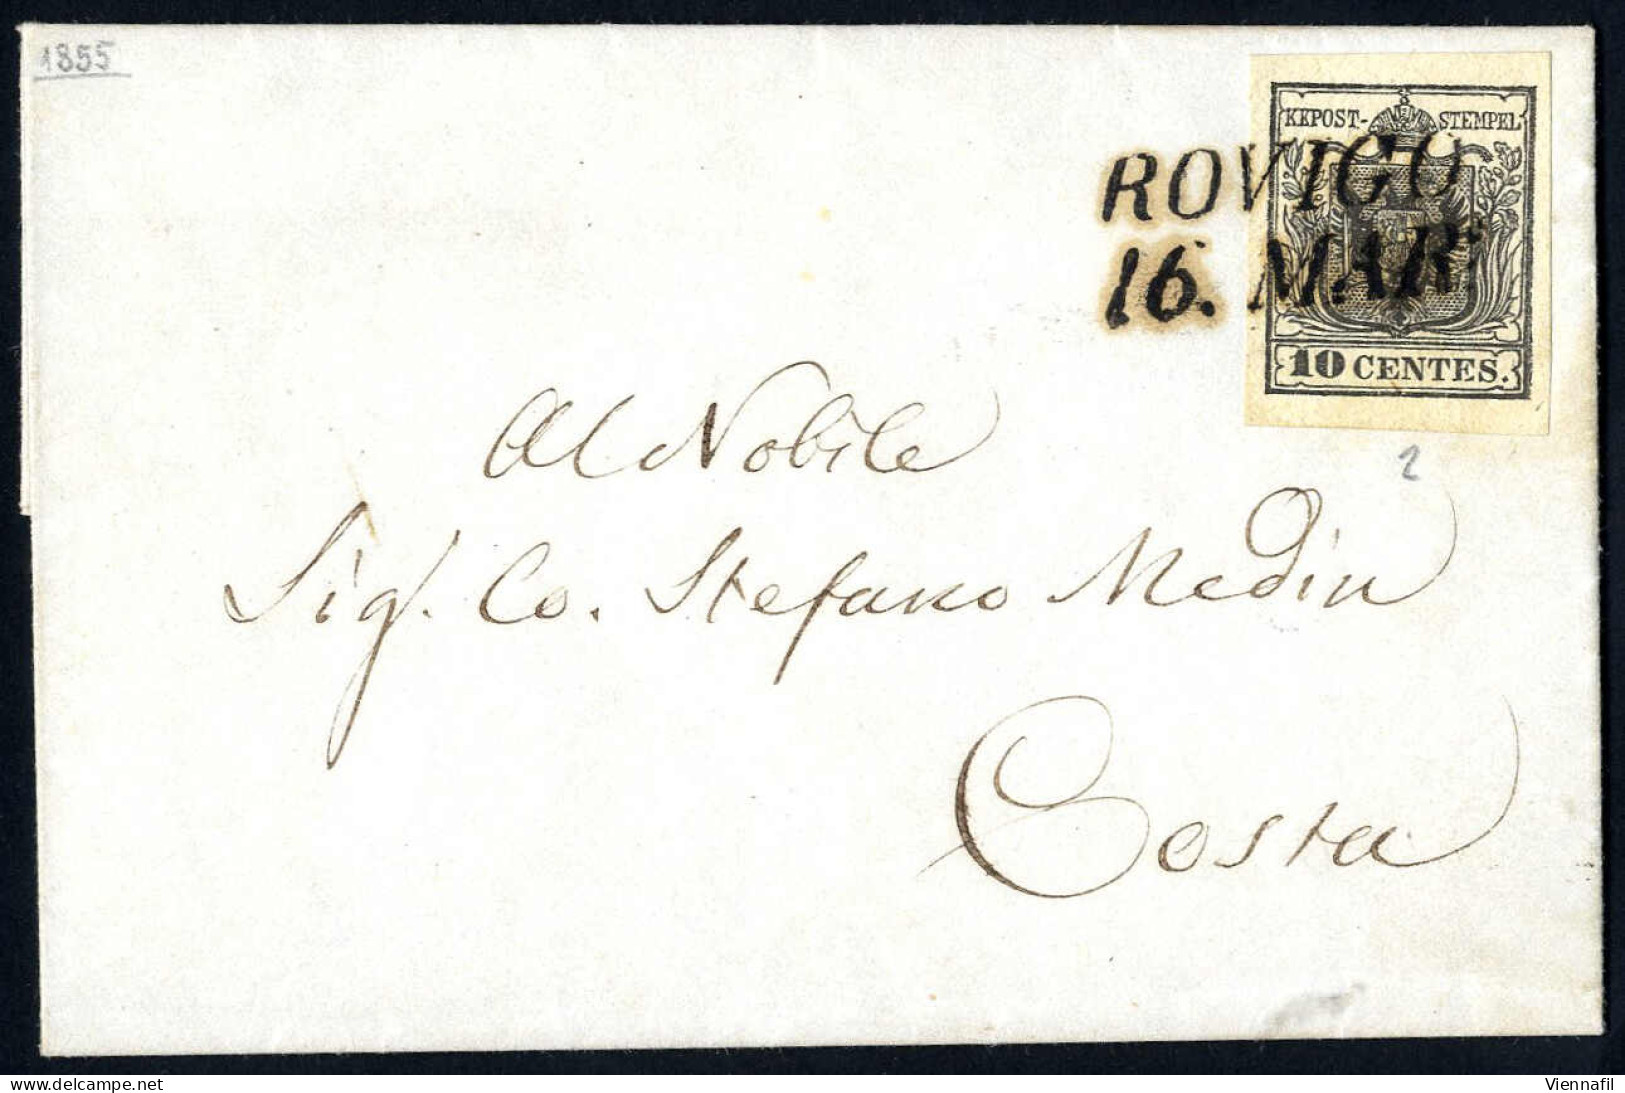 1855
KKPOST-STEMPEL
ROVIGO
16. MAR.
10 CENTES.
2
Al Nobile
Sig. Co. Stefano Medin
Costa
delcampe.net
Viennafil